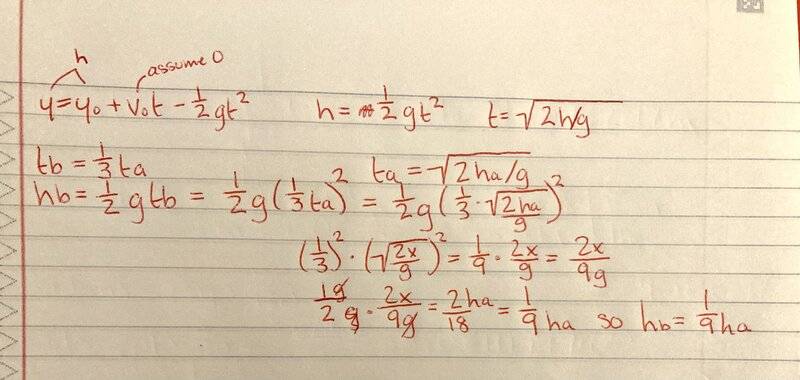 h
assume 0
y = y₀ + v₀t - 1/2 gt²   h = 1/2 gt²   t = √2h/g
tb = 1/3 ta   ta = √2ha/g
hb = 1/2 gtb = 1/2 g(1/3 ta)² = 1/2 g(1/3 · √2ha/g)²
(1/3)² · (√2x/g)² = 1/9 · 2x/g = 2x/9g
1g/2 · 2x/9g = 2ha/18 = 1/9 ha so hb = 1/9 ha